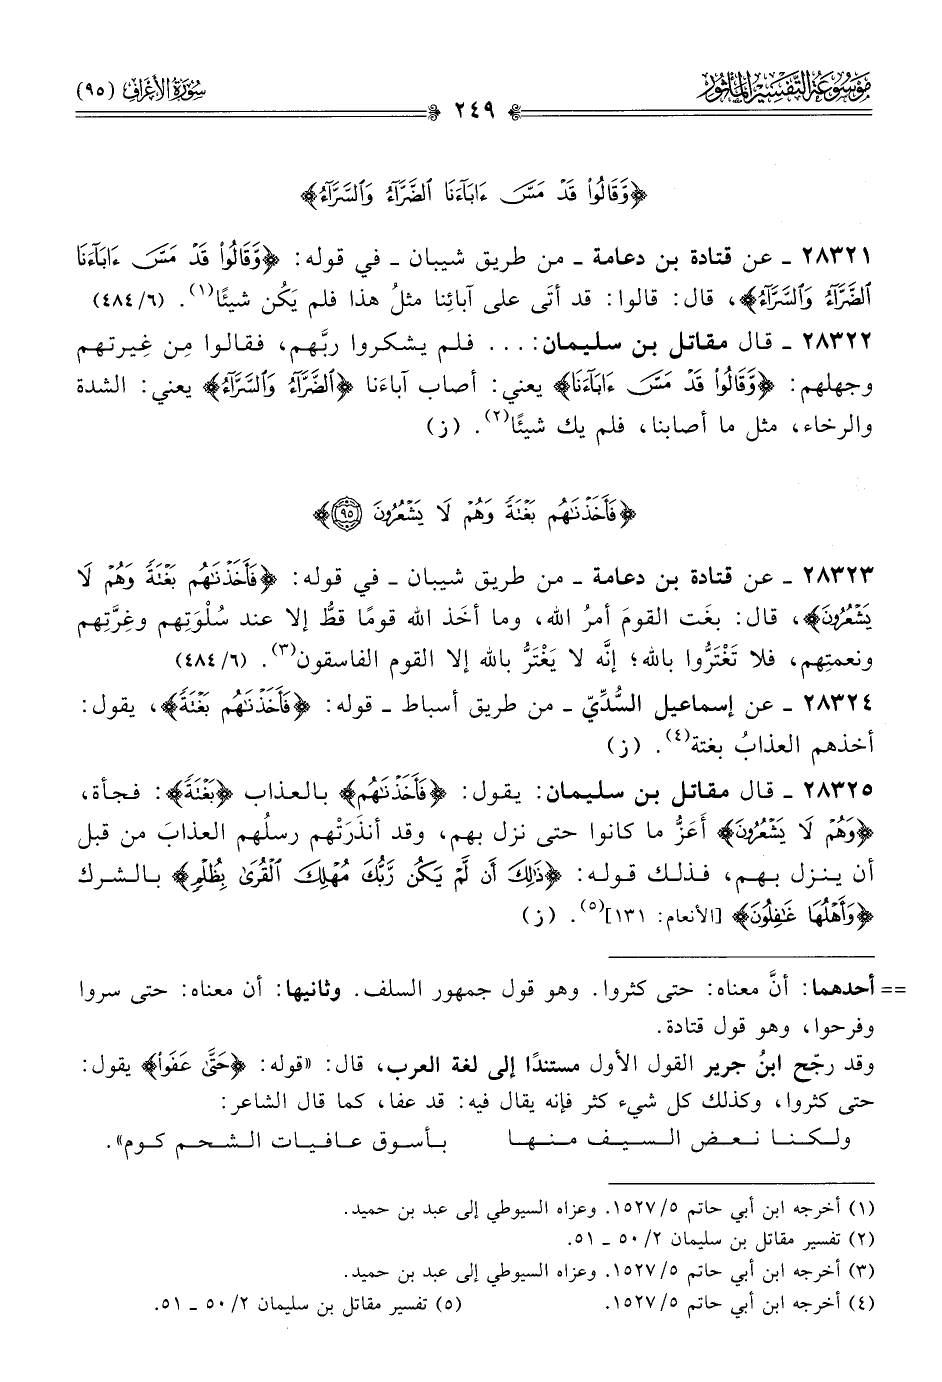 مَوْسُوعَة التَّفْسِيْرِ المَأْثُور
٢٤٩
سُورَةُ الأَعْرَاف (٩٥)
﴿وَّقَالُوا۟ قَدْ مَسَّ ءَابَآءَنَا ٱلضَّرَّآءُ وَٱلسَّرَّآءُ﴾
٢٨٣٢١ ـ عن قتادة بن دعامة ـ من طريق شيبان ـ في قوله: ﴿وَّقَالُوا۟ قَدْ مَسَّ ءَابَآءَنَا
ٱلضَّرَّآءُ وَٱلسَّرَّآءُ﴾، قال: قالوا: قد أتَى على آبائِنا مثلُ هذا فلم يَكُن شيئًا(١). (٦/ ٤٨٤)
٢٨٣٢٢ ـ قال مقاتل بن سليمان: ... فلم يشكروا ربَّهم، فقالوا مِن غِيرتهم
وجهلهم: ﴿وَّقَالُوا۟ قَدْ مَسَّ ءَابَآءَنَا﴾ يعني: أصاب آباءَنا ﴿ٱلضَّرَّآءُ وَٱلسَّرَّآءُ﴾ يعني: الشدة
والرخاء، مثل ما أصابنا، فلم يك شيئًا(٢). (ز)
﴿فَأَخَذْنَٰهُم بَغْتَةً وَهُمْ لَا يَشْعُرُونَ ٩٥﴾
٢٨٣٢٣ ـ عن قتادة بن دعامة ـ من طريق شيبان ـ في قوله: ﴿فَأَخَذْنَٰهُم بَغْتَةً وَهُمْ لَا
يَشْعُرُونَ﴾، قال: بغَت القومَ أمرُ الله، وما أخَذ الله قومًا قطُّ إلا عند سُلْوَتِهم وغِرَّتِهم
ونعمتِهم، فلا تَغْتَرُّوا بالله؛ إنَّه لا يَغْتَرُّ بالله إلا القوم الفاسقون(٣). (٦/ ٤٨٤)
٢٨٣٢٤ ـ عن إسماعيل السُّدِّيّ ـ من طريق أسباط ـ قوله: ﴿فَأَخَذْنَٰهُم بَغْتَةً﴾، يقول:
أخذهم العذابُ بغتة(٤). (ز)
٢٨٣٢٥ ـ قال مقاتل بن سليمان: يقول: ﴿فَأَخَذْنَٰهُم﴾ بالعذاب ﴿بَغْتَةً﴾: فجأة،
﴿وَهُمْ لَا يَشْعُرُونَ﴾ أَعَزُّ ما كانوا حتى نزل بهم، وقد أنذَرَتْهم رسلُهم العذابَ من قبل
أن ينزل بهم، فذلك قوله: ﴿ذَٰلِكَ أَن لَّمْ يَكُن رَّبُّكَ مُهْلِكَ ٱلْقُرَىٰ بِظُلْمٍ﴾ بالشرك
﴿وَأَهْلُهَا غَٰفِلُونَ﴾ [الأنعام: ١٣١](٥). (ز)
== أحدهما: أنَّ معناه: حتى كثروا. وهو قول جمهور السلف. وثانيها: أن معناه: حتى سروا
وفرحوا، وهو قول قتادة.
وقد رجّح ابنُ جرير القول الأول مستندًا إلى لغة العرب، قال: «قوله: ﴿حَتَّىٰ عَفَوا۟﴾ يقول:
حتى كثروا، وكذلك كل شيء كثر فإنه يقال فيه: قد عفا، كما قال الشاعر:
ولكنا نعض السيف منها بأسوق عافيات الشحم كوم».
(١) أخرجه ابن أبي حاتم ٥/ ١٥٢٧. وعزاه السيوطي إلى عبد بن حميد.
(٢) تفسير مقاتل بن سليمان ٢/ ٥٠ ـ ٥١.
(٣) أخرجه ابن أبي حاتم ٥/ ١٥٢٧. وعزاه السيوطي إلى عبد بن حميد.
(٤) أخرجه ابن أبي حاتم ٥/ ١٥٢٧. (٥) تفسير مقاتل بن سليمان ٢/ ٥٠ ـ ٥١.